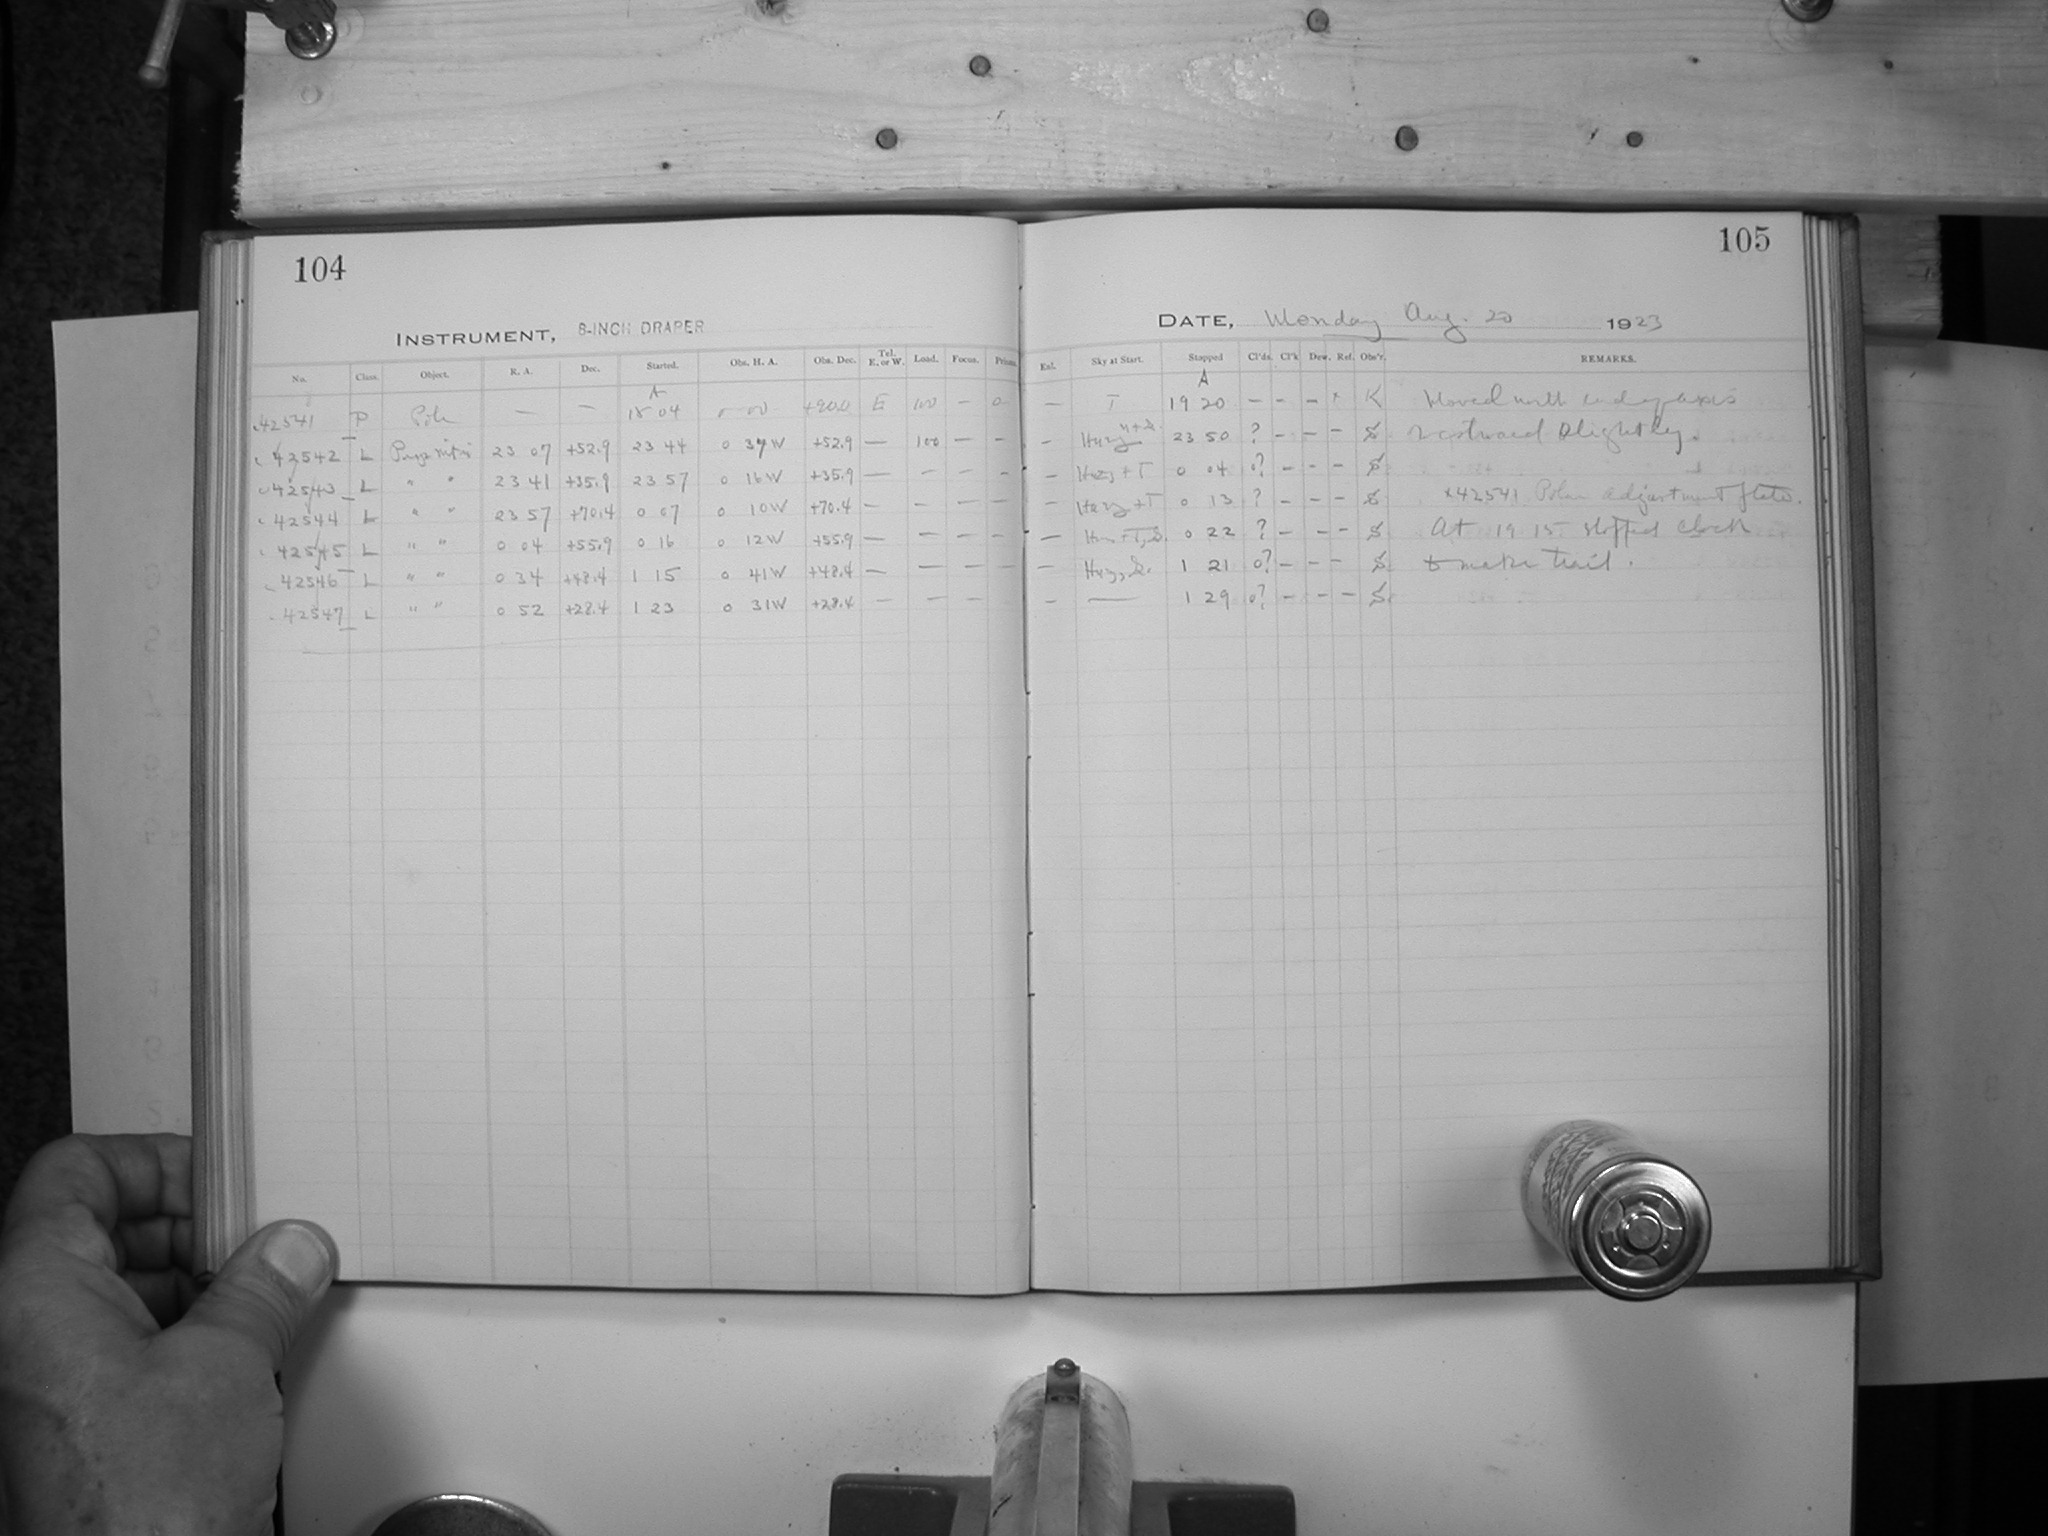 104
INSTRUMENT, 8-INCH DRAPER
No. Class. Object. R. A. Dec. Started. Obs. H. A. Obs. Dec. Tel. E. or W. Load. Focus. Prism
A
42541 P Pole — — 18 04 0 00 +90.0 E 100 — 0
42542 L 23 07 +52.9 23 44 0 37 W +52.9 — 100 — —
42543 L " " 23 41 +35.9 23 57 0 16 W +35.9 — — — —
42544 L " " 23 57 +70.4 0 07 0 10 W +70.4 — — — —
42545 L " " 0 04 +55.9 0 16 0 12 W +55.9 — — — —
42546 L " " 0 34 +48.4 1 15 0 41 W +48.4 — — — —
42547 L " " 0 52 +28.4 1 23 0 31 W +28.4 — — — —
105
DATE, Monday Aug. 20 1923
Exl. Sky at Start. Stopped Cl'ds. Cl'k Dew. Ref. Obs'r. REMARKS.
A
— T 19 20 — — — × K Moved north end of axis
— Hazy 23 50 ? — — — S westward slightly.
— Hazy + T 0 04 0? — — — S
— Hazy + T 0 13 ? — — — S ×42541 Polar adjustment plate.
— 0 22 ? — — — S At 19 15 stopped clock
— 1 21 0? — — — S to make trail.
— — 1 29 0? — — — S